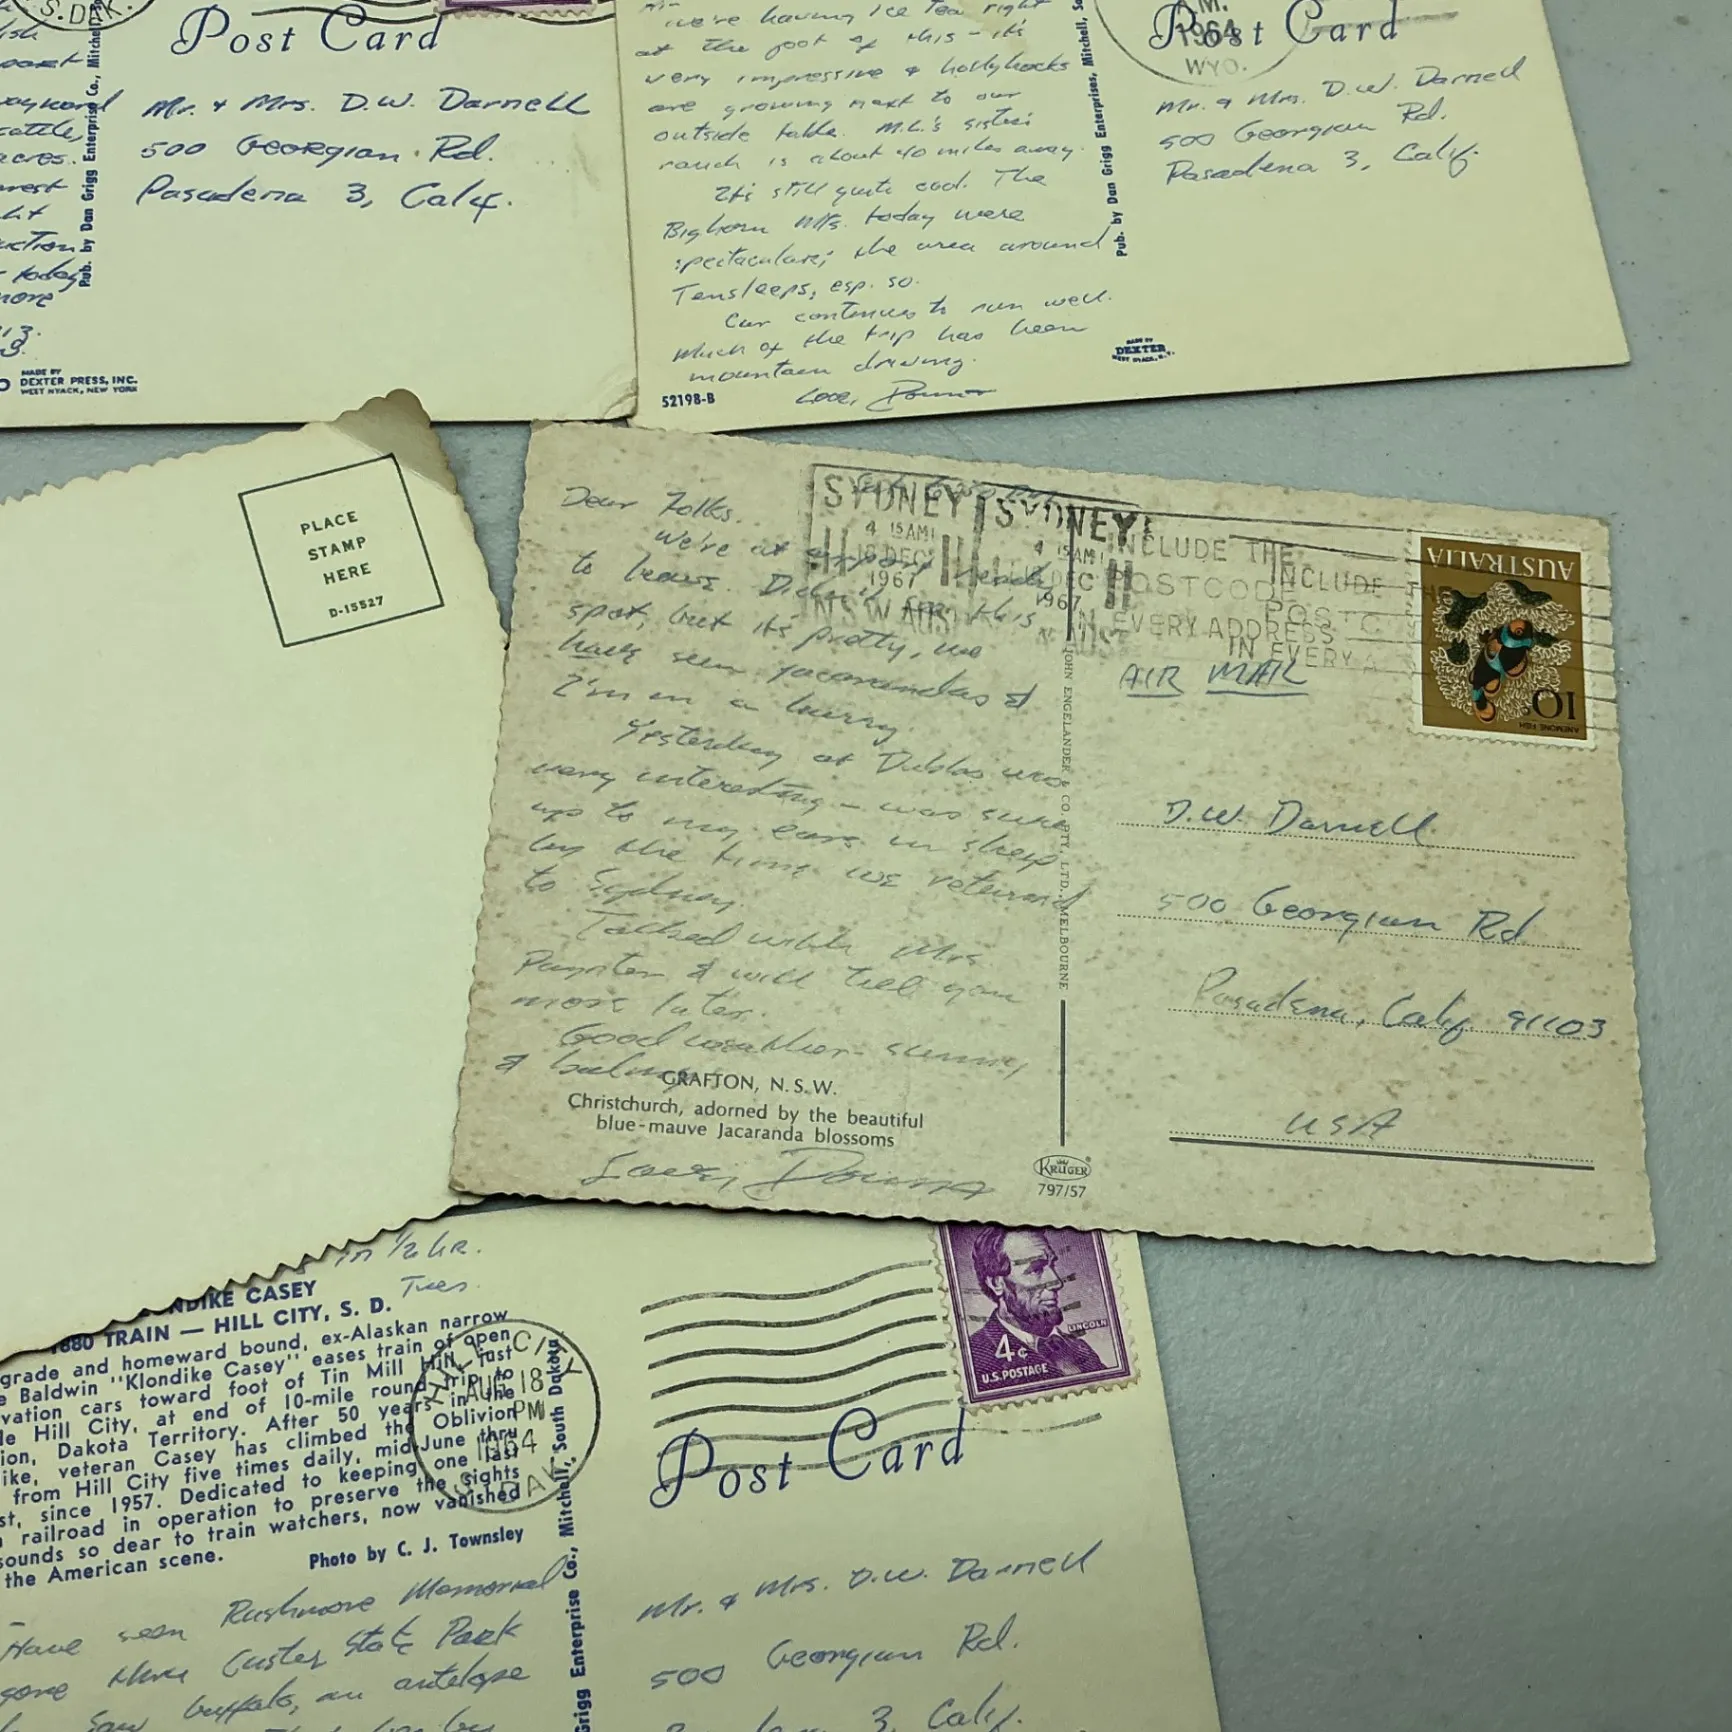 S. DAK.
Post Card
Mr. + Mrs. D.W. Darnell
500 Georgian Rd.
Pasadena 3, Calif.
Pub. by Dan Grigg Enterprise Co., Mitchell
MADE BY
DEXTER PRESS, INC.
WEST NYACK, NEW YORK
we're having ice tea right
at the foot of this - it's
very impressive & hollyhocks
are growing next to our
outside table. M.L.'s sister's
ranch is about 40 miles away.
It's still quite cool. The
Bighorn Mts. today were
spectacular; the area around
Tensleeps, esp. so.
Car continues to run well.
Much of the trip has been
mountain driving.
Love, Donna
52198-B
Pub. by Dan Grigg Enterprises, Mitchell, So
MADE BY
DEXTER
WEST NYACK, N.Y.
M.
1964
WYO.
Post Card
Mr. & Mrs. D.W. Darnell
500 Georgian Rd.
Pasadena 3, Calif.
PLACE
STAMP
HERE
D-15527
Dear Folks.
We're at airport ready
to leave. Didn't see this
spot, but it's pretty, we
have seen jacarandas &
I'm in a hurry.
Yesterday at Dubbo was
very interesting - was sure
up to my ears in sheep
by the time we returned
to Sydney.
Talked with Mrs.
Paynter & will tell you
more later.
Good weather - sunny
& balmy
GRAFTON, N.S.W.
Christchurch, adorned by the beautiful
blue-mauve Jacaranda blossoms
Love, Donna
JOHN ENGELANDER & CO. PTY. LTD., MELBOURNE
KRUGER
797/57
SYDNEY
4 15 AM
DEC
1967
N.S.W. AUST
SYDNEY
4 15 AM
DEC
1967
AUST
INCLUDE THE
POSTCODE
IN EVERY ADDRESS
INCLUDE THE
POSTC
IN EVERY A
AIR MAIL
AUSTRALIA
10c
ANEMONE FISH
D.W. Darnell
500 Georgian Rd
Pasadena, Calif. 91103
USA
in 1/2 hr.
Tues.
NDIKE CASEY
1880 TRAIN — HILL CITY, S. D.
grade and homeward bound, ex-Alaskan narrow
e Baldwin "Klondike Casey" eases train of open
vation cars toward foot of Tin Mill Hill, just
le Hill City, at end of 10-mile round trip to
ion, Dakota Territory. After 50 years in the
ike, veteran Casey has climbed the Oblivion
from Hill City five times daily, mid-June thru
st, since 1957. Dedicated to keeping one last
railroad in operation to preserve the sights
sounds so dear to train watchers, now vanished
the American scene.
Photo by C. J. Townsley
HILL CITY
AUG 18
PM
1964
S. DAK.
Grigg Enterprise Co., Mitchell, South Dakota
4¢
U.S. POSTAGE
LINCOLN
Post Card
Have seen Rushmore Memorial
gone thru Custer State Park
Saw buffalo, an antelope
Mr. & Mrs. D.W. Darnell
500 Georgian Rd.
3, Calif.